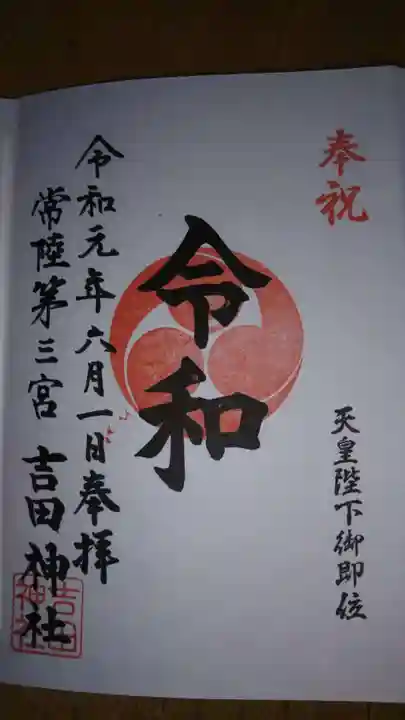 奉祝
天皇陛下御即位
令和
令和元年六月一日奉拝
常陸第三宮 吉田神社
吉田神社